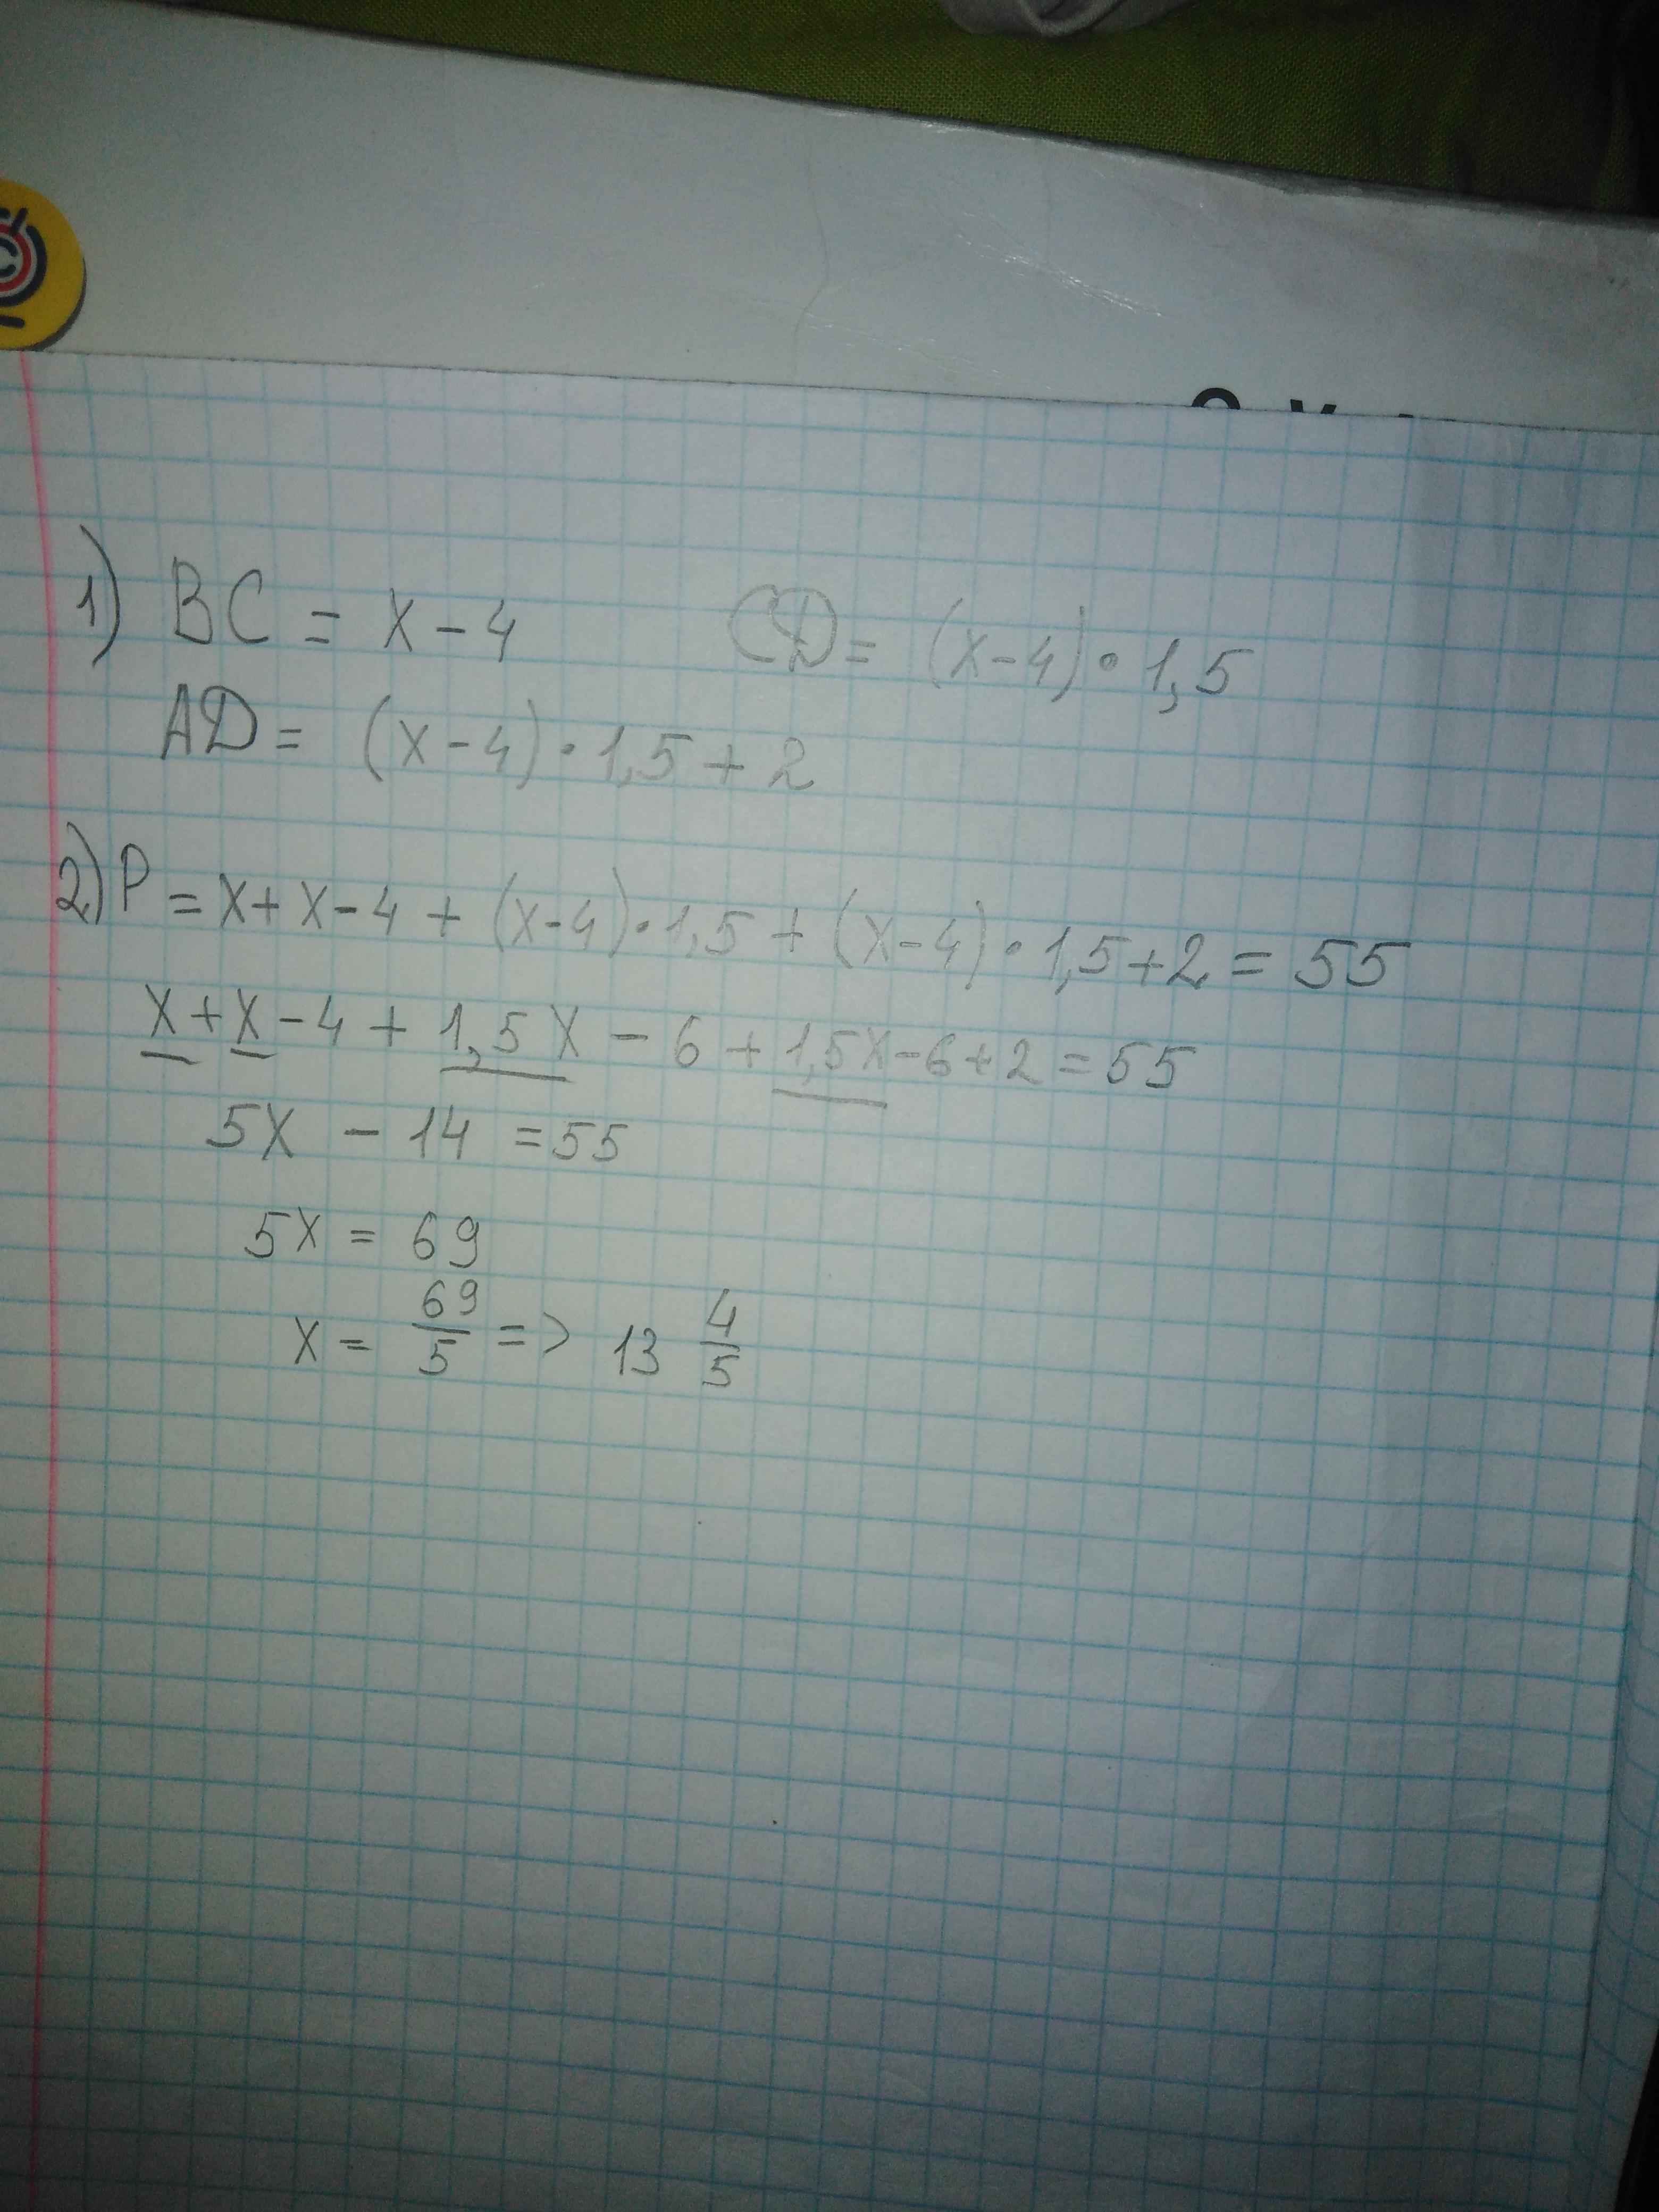 1) BC = x - 4 CD = (x-4) • 1,5
AD = (x-4) • 1,5 + 2
2) P = x + x - 4 + (x-4) • 1,5 + (x-4) • 1,5 + 2 = 55
x + x - 4 + 1,5x - 6 + 1,5x - 6 + 2 = 55
5x - 14 = 55
5x = 69
x = 69/5 => 13 4/5